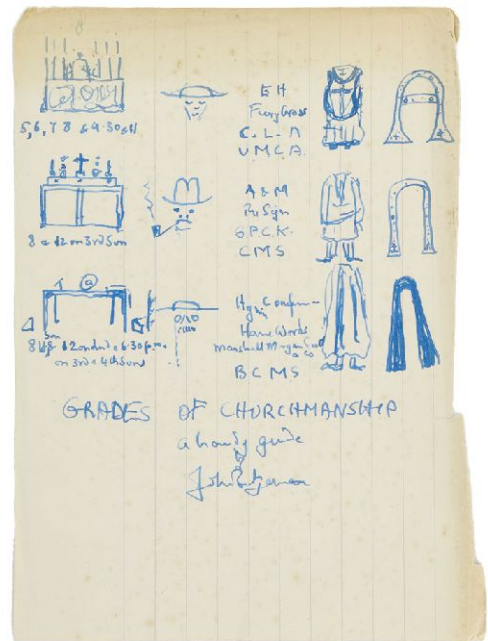 5, 6, 7 8 & 9.30
EH
Fiery Cross
C.L.A
UMCA.
8 & 12 on 3rd Sun
A & M
The Sign
S.P.C.K.
CMS
8 & 12 and 6.30 p.m.
on 3rd & 4th Suns
Hym Compan
Home Words
Marshall Morgan Scott & Co
BCMS
GRADES OF CHURCHMANSHIP
a handy guide
by
John Betjeman